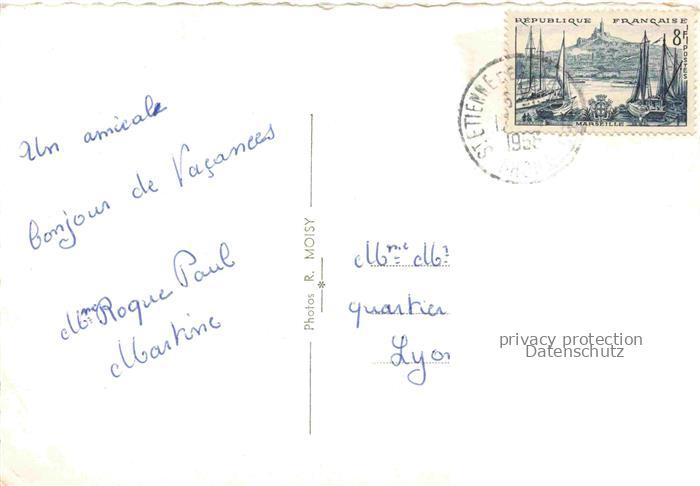 Un amicale
bonjour de Vaçances
Mme Roque Paul
Martine
Photos R. MOISY
RÉPUBLIQUE FRANÇAISE
8F
POSTES
MARSEILLE
ST ETIENNE
1956
Mme M
quartier
Lyon
privacy protection
Datenschutz